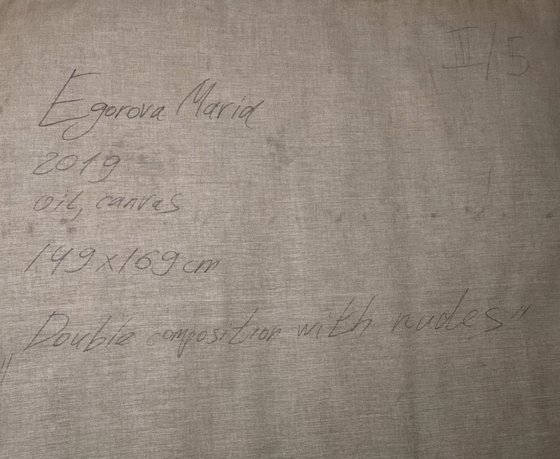 II/5
Egorova Maria
2019
oil, canvas
149x169 cm
„Double composition with nudes"